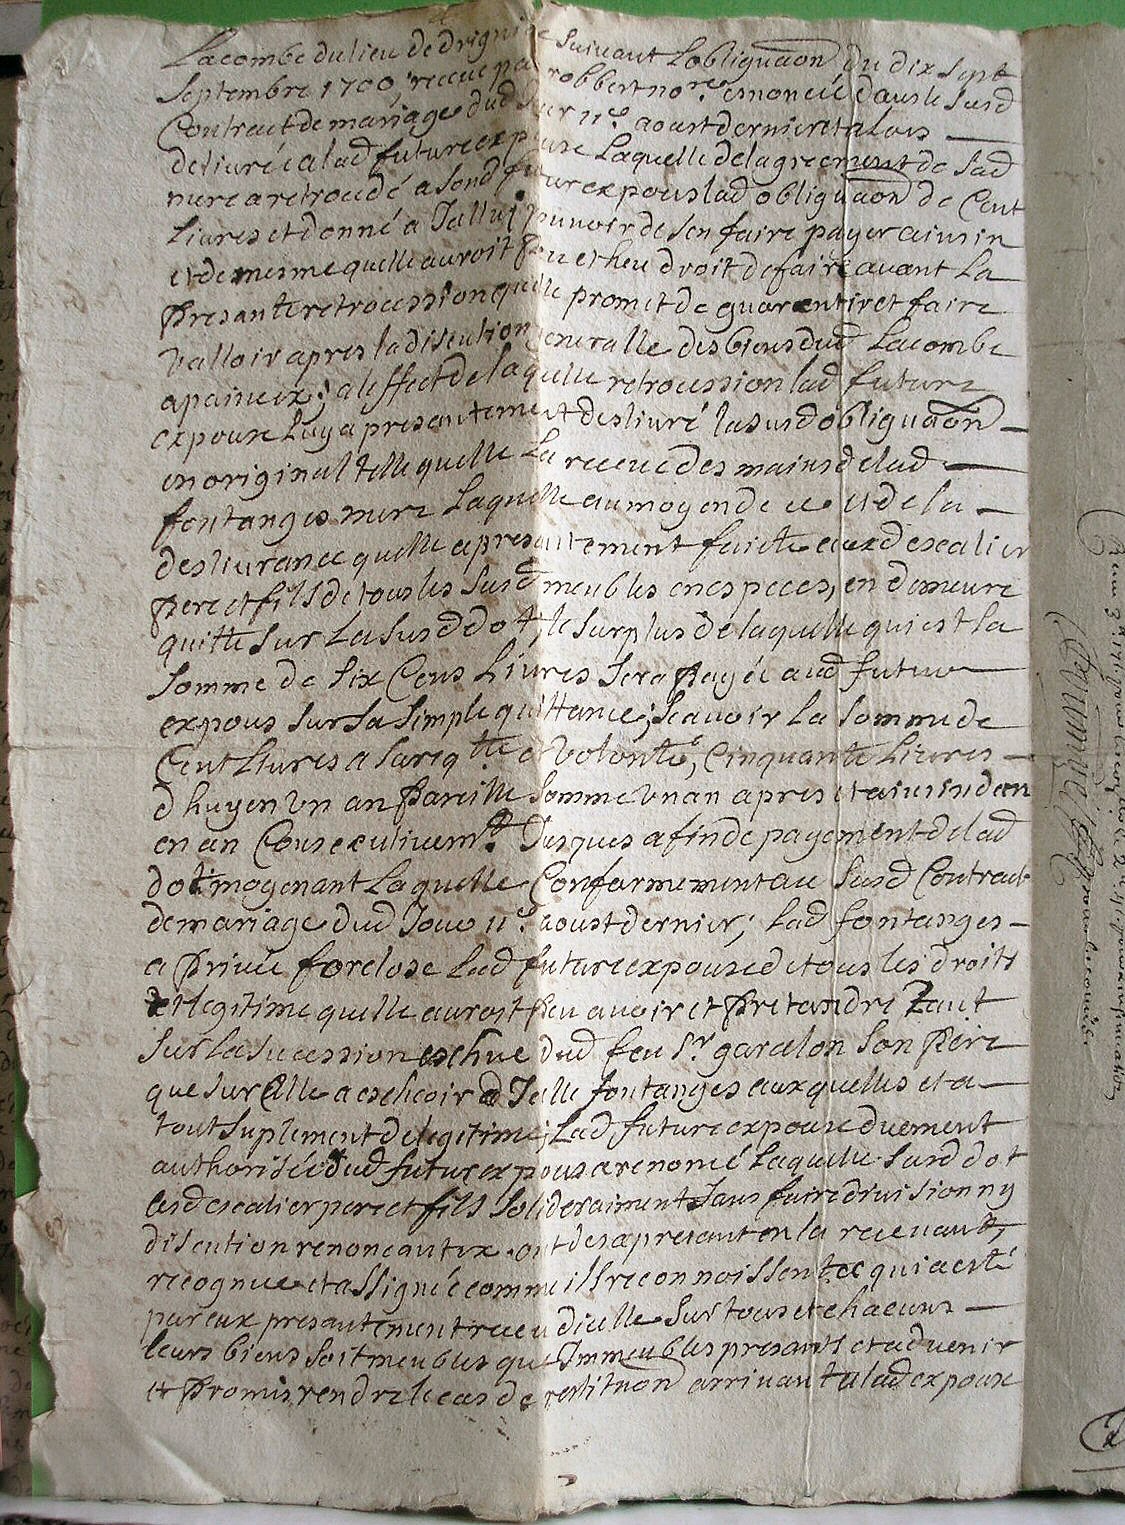 Lacombe du lieu de drignac suivant Lobliguaon du dix sept
Septembre 1700, receue par robbert nore. enoncée dans le susd
Contract de mariage dud Jour 11e. aoust dernier et alors
delivrée a lad future expouse Laquelle de lagreement de sad
mere a retrocedé a sond futur expous lad obliguaon de Cent
Livres et donné a Jalluy pouvoir de sen faire payer ainsin
et de mesme quelle auroit peu et heu droit de faire avant La
presante retrocession quelle promet de guarentir et faire
valloir apres la discution generalle des biens dud Lacombe
a paine &c; a leffect de laquelle retrocession lad future
expouse Luy a presantement deslivré la susd obliguaon
en original telle quelle La receue des mains de lad
fontanges mere Laquelle au moyen de ce et de la
deslivrance quelle a presantement faicte auxd escalier
pere et fils de tous les susd meubles en especes, en demeure
quitte sur La susd dot, le surplus de laquelle qui est la
somme de six Cens Livres sera payée aud futur
expous sur sa simple quittance; scavoir La somme de
Cent Livres a sa reqtte et volonte, Cinquante Livres
dhuy en un an pareille somme un an apres et ainsin dan
en an Consecutivemt. Jusques a fin de payement de lad
dot moyenant Laquelle Conformement au susd Contract
de mariage dud Jour 11e. aoust dernier; lad fontanges
a privée forclose Lad future expouse de tous les droits
et legitime quelle auroit peu avoir et pretandre tant
sur la sucession eschue dud feu sr. garcelon son pere
que sur Celle a escheoir d Jcelle fontanges auxquelles et a
tout suplement de legitime; Lad future expouse duement
authorisée dud futur expous a renoncé Laquelle susd dot
lesd escalier pere et fils solideraiment sans faire division ny
discution renonceant &c ont des a presant en la recevant,
recognue et assignée comme ils reconnoissent ce qui a esté
par eux presantement receu dicelle sur tous et chacuns
leurs biens soit meubles que Immeubles presants et advenir
et promis rendre le cas de restituon arrivant a lad expouse